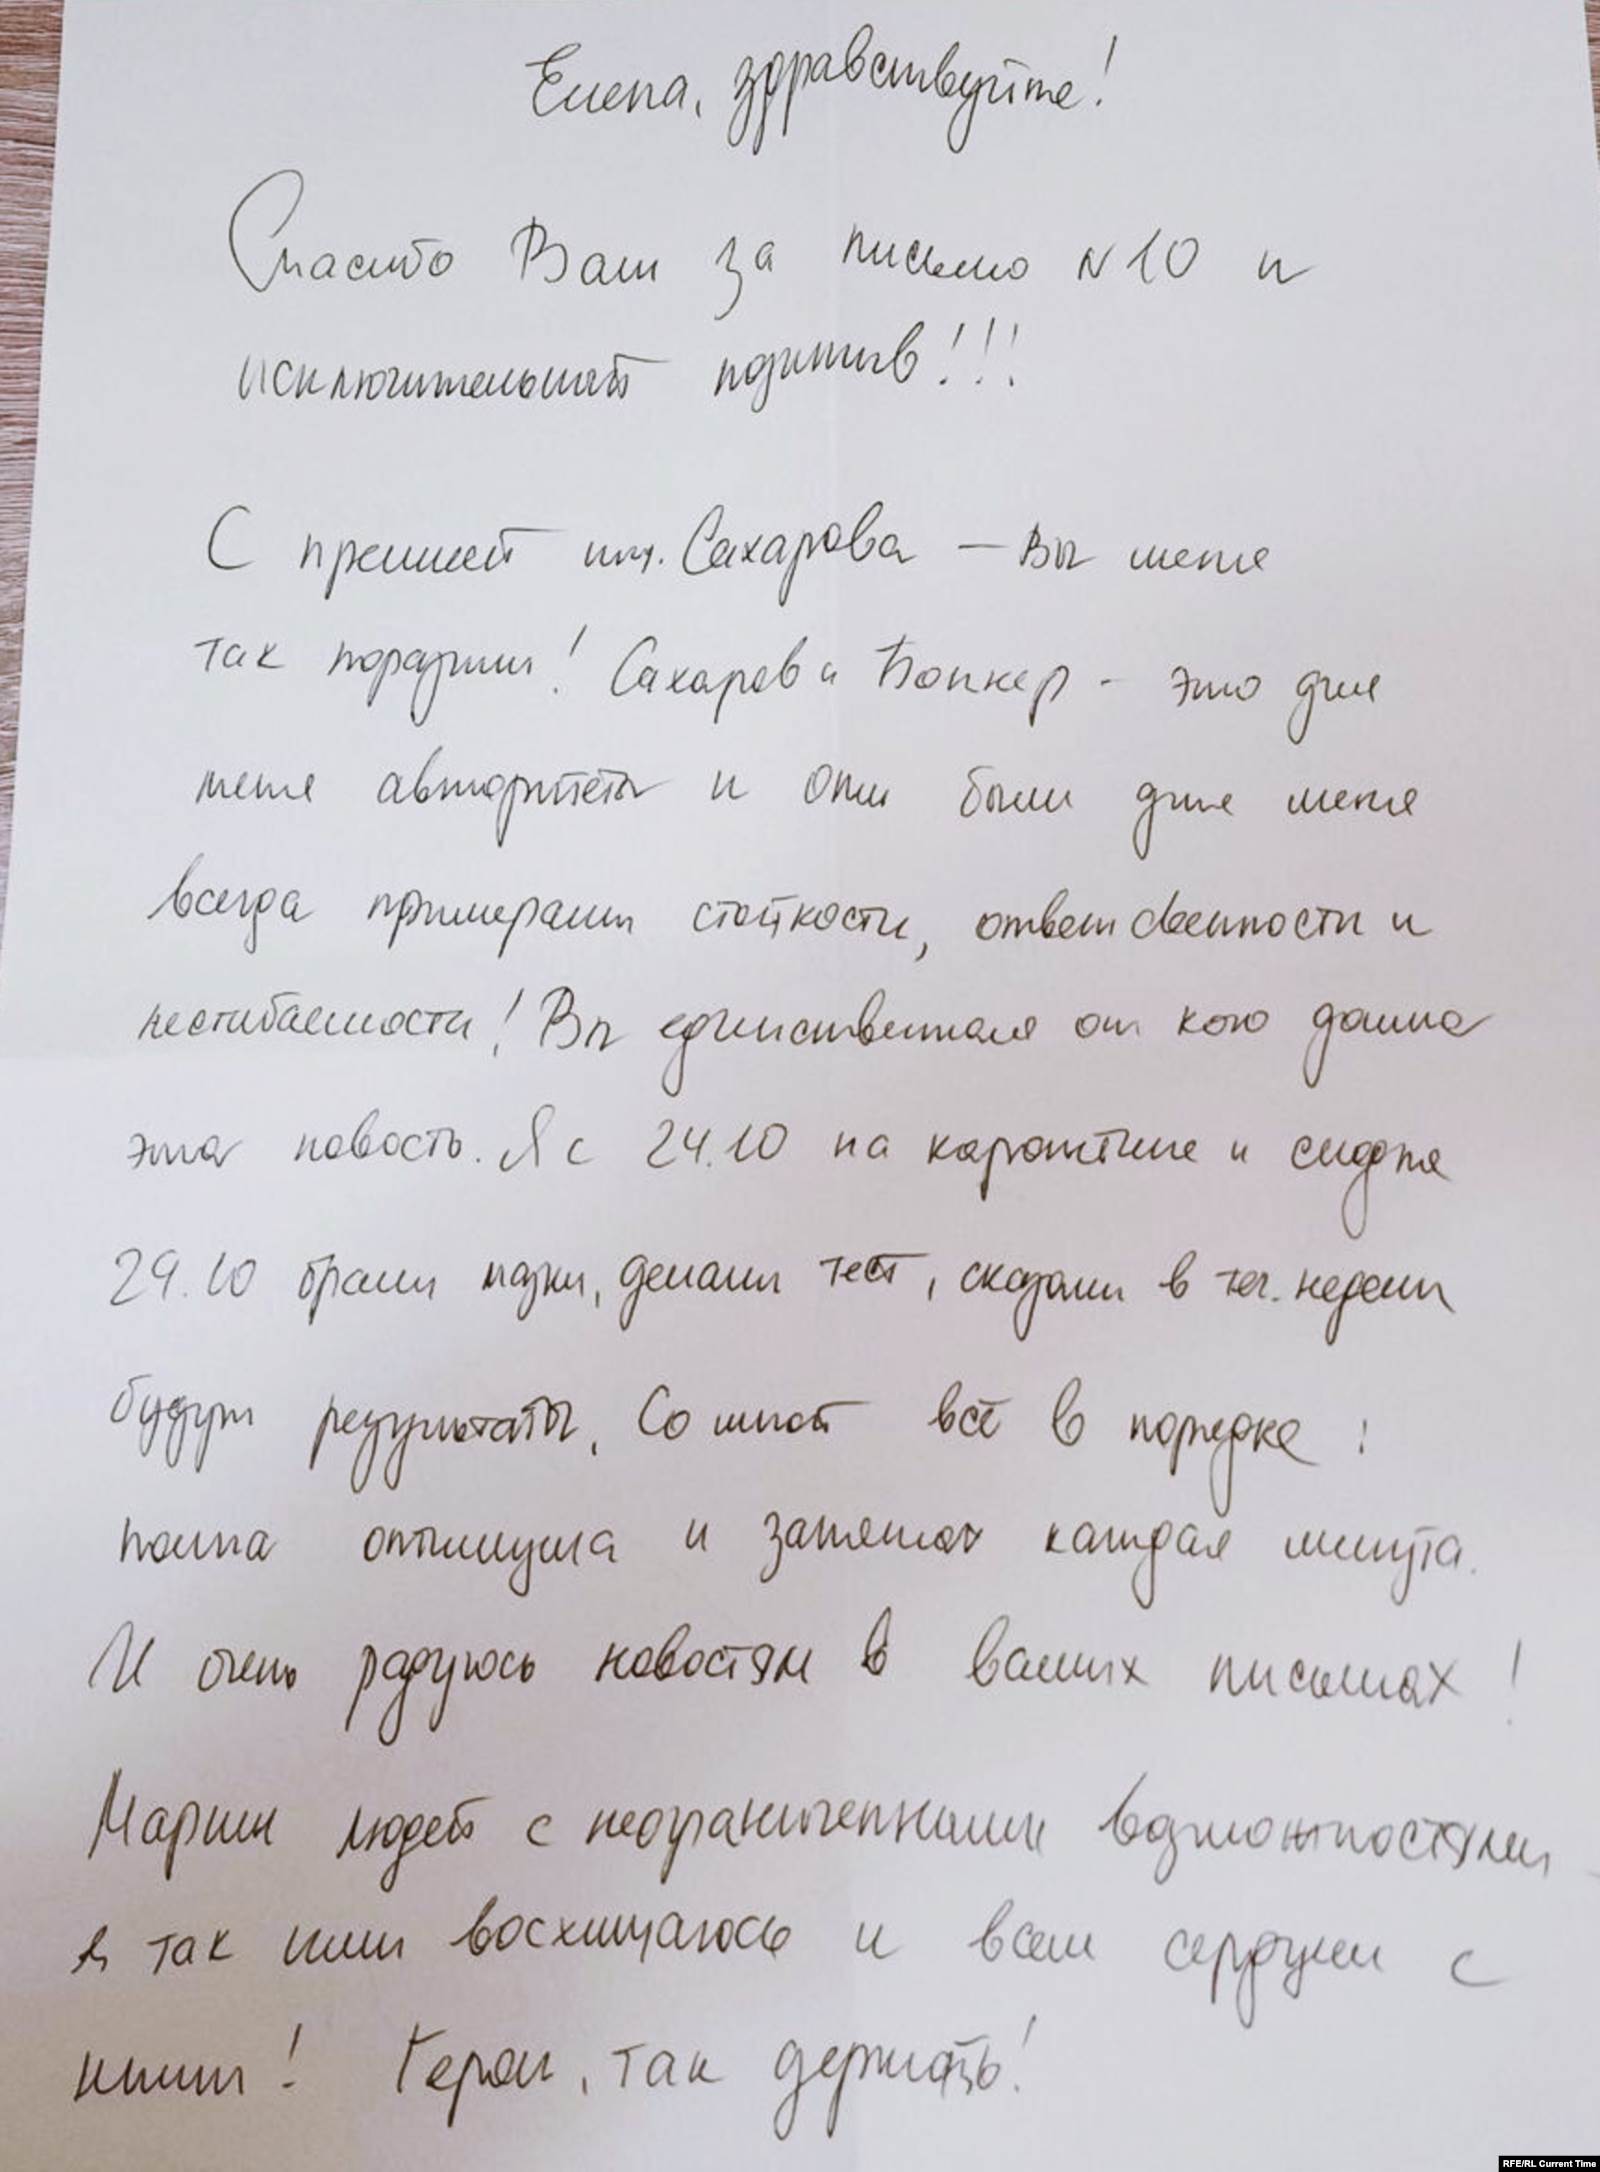 Елена, здравствуйте!
Спасибо Вам за письмо N10 и
исключительный позитив!!!
С премией им. Сахарова — Вы меня
так поразили! Сахаров и Боннер - это для
меня авторитеты и они были для меня
всегда примерами стойкости, ответственности и
несгибаемости! Вы единственная от кого дошла
эта новость. Я с 24.10 на карантине и сидя
29.10 брали мазки, делали тест, сказали в теч. недели
будут результаты. Со мной всё в порядке:
полна оптимизма и занятая каждая минута.
И очень радуюсь новостям в ваших письмах!
Марши людей с неограниченными возможностями
я так ими восхищаюсь и всем сердцем с
ними! Герои, так держать!
RFE/RL Current Time